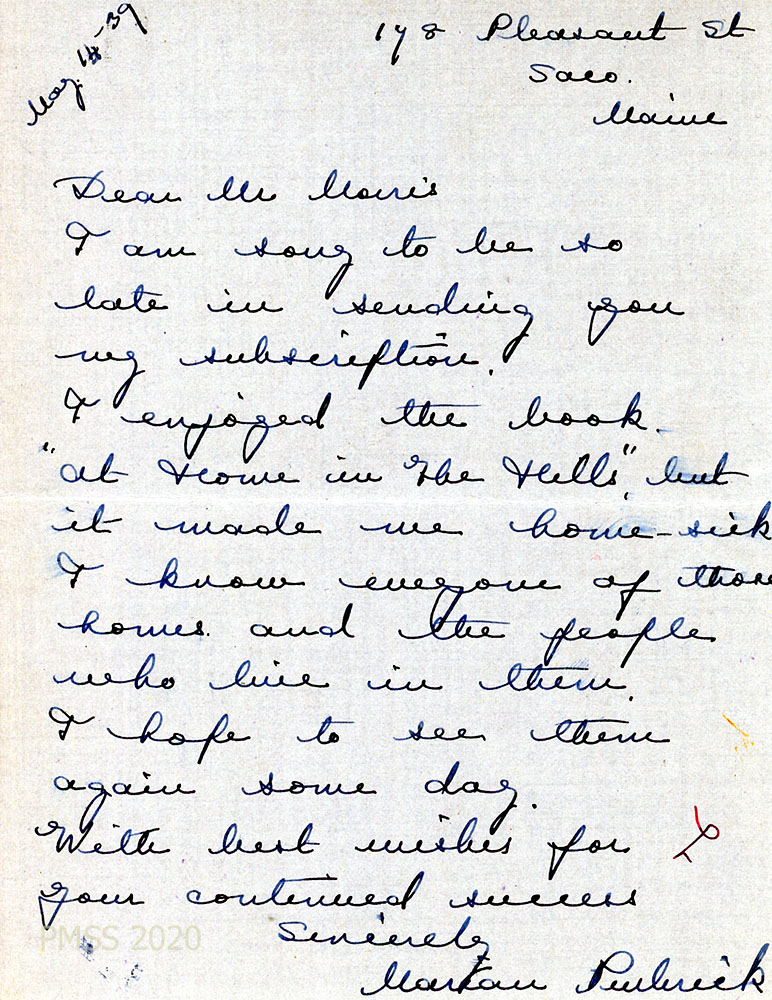 May 14-39
178 Pleasant St
Saco.
Maine
Dear Mr Morris
I am sorry to be so
late in sending you
my subscription.
I enjoyed the book
"at Home in The Hills", but
it made me home-sick
I know everyone of those
homes. and the people
who live in them.
I hope to see them
again some day.
With best wishes for
your continued success
Sincerely
Marian
PMSS 2020